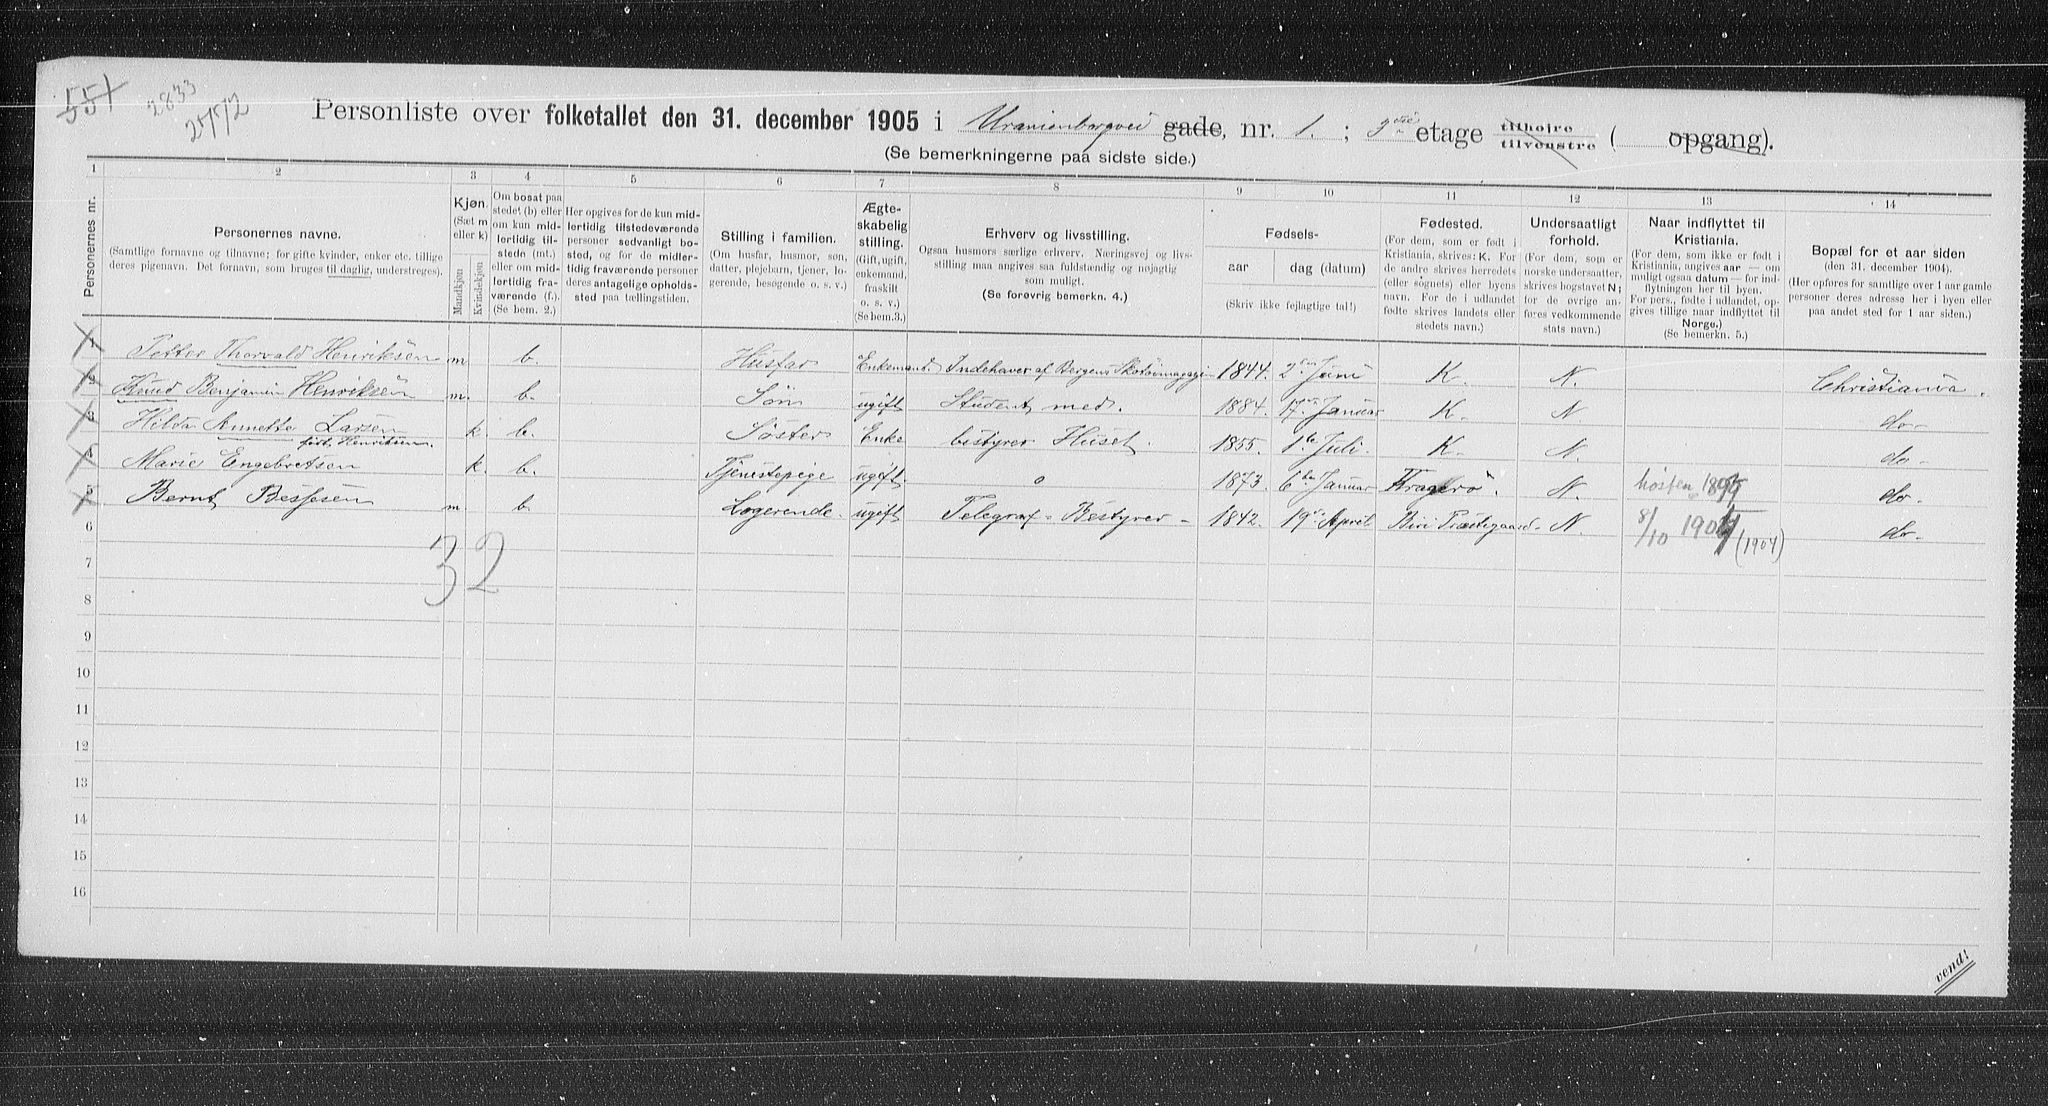 551 2833 2772
Personliste over folketallet den 31. december 1905 i Uranienborgvei gade, nr. 1. ; 3die etage tilhøire tilvenstre ( opgang).
(Se bemerkningerne paa sidste side.)
1 2 3 4 5 6 7 8 9 10 11 12 13 14
Personernes nr.
Personernes navne.
(Samtlige fornavne og tilnavne; for gifte kvinder, enker etc. tillige
deres pigenavn. Det fornavn, som bruges til daglig, understreges).
Kjøn.
(Sæt m
eller k)
Mandkjøn
Kvindekjøn
Om bosat paa
stedet (b) eller
om kun mid-
lertidig til-
stede (mt.)
eller om mid-
lertidig fra-
værende (f.).
(Se bem. 2.)
Her opgives for de kun mid-
lertidig tilstedeværende
personer sedvanligt bo-
sted, og for de midler-
tidig fraværende personer
deres antagelige opholds-
sted paa tællingstiden.
Stilling i familien.
(Om husfar, husmor, søn,
datter, plejebarn, tjener, lo-
gerende, besøgende o. s. v.)
Ægte-
skabelig
stilling.
(Gift, ugift,
enkemand,
fraskilt
o. s. v.)
(Se bem.3.)
Erhverv og livsstilling.
Ogsaa husmors særlige erhverv. Næringsvej og livs-
stilling maa angives saa fuldstændig og nøjagtig
som muligt.
(Se forøvrig bemerkn. 4.)
Fødsels-
aar dag (datum)
(Skriv ikke fejlagtige tal!)
Fødested.
(For dem, som er født i
Kristiania, skrives: K. For
de andre skrives herredets
(eller sognets) eller byens
navn. For de i udlandet
fødte skrives landets eller
stedets navn.)
Undersaatligt
forhold.
(For dem, som er
norske undersaatter,
skrives bogstavet N;
for de øvrige an-
føres vedkommende
stats navn.)
Naar indflyttet til
Kristiania.
(For dem, som ikke er født i
Kristiania, angives aar — om
muligt ogsaa datum — for ind-
flytningen her til byen.
For pers., fødte i udlandet, op-
gives tillige naar indflyttet til
Norge.)
(Se bemerkn. 5.)
Bopæl for et aar siden
(den 31. december 1904).
(Her opføres for samtlige over 1 aar gamle
personer deres adresse her i byen eller
paa andet sted for 1 aar siden.)
1 Petter Thorvald Henriksen m b. Husfar Enkemand. Indehaver af Bergens Skotøimagazin 1844. 2den Juni K. N. Christiania.
2 Knud Benjamin Henriksen m. b. Søn ugift Student med. 1884. 17de Januar K. N do-
3 Hilda Annette Larsen k. b. Søster Enke bestyrer Huset. 1855. 1te Juli. K N. do-
født Henriksen.
4 Marie Engebretsen k. b. Tjenestepige ugift. o 1873. 6te Januar Kragerø. N. høsten do-
5 Bernt m. b. Logerende. ugift Telegraf-Bestyrer- 1842. 19de April Biri Præstegaard- N. 8/10 (1904) do-
6
7 32
8
9
10
11
12
13
14
15
16
vend!